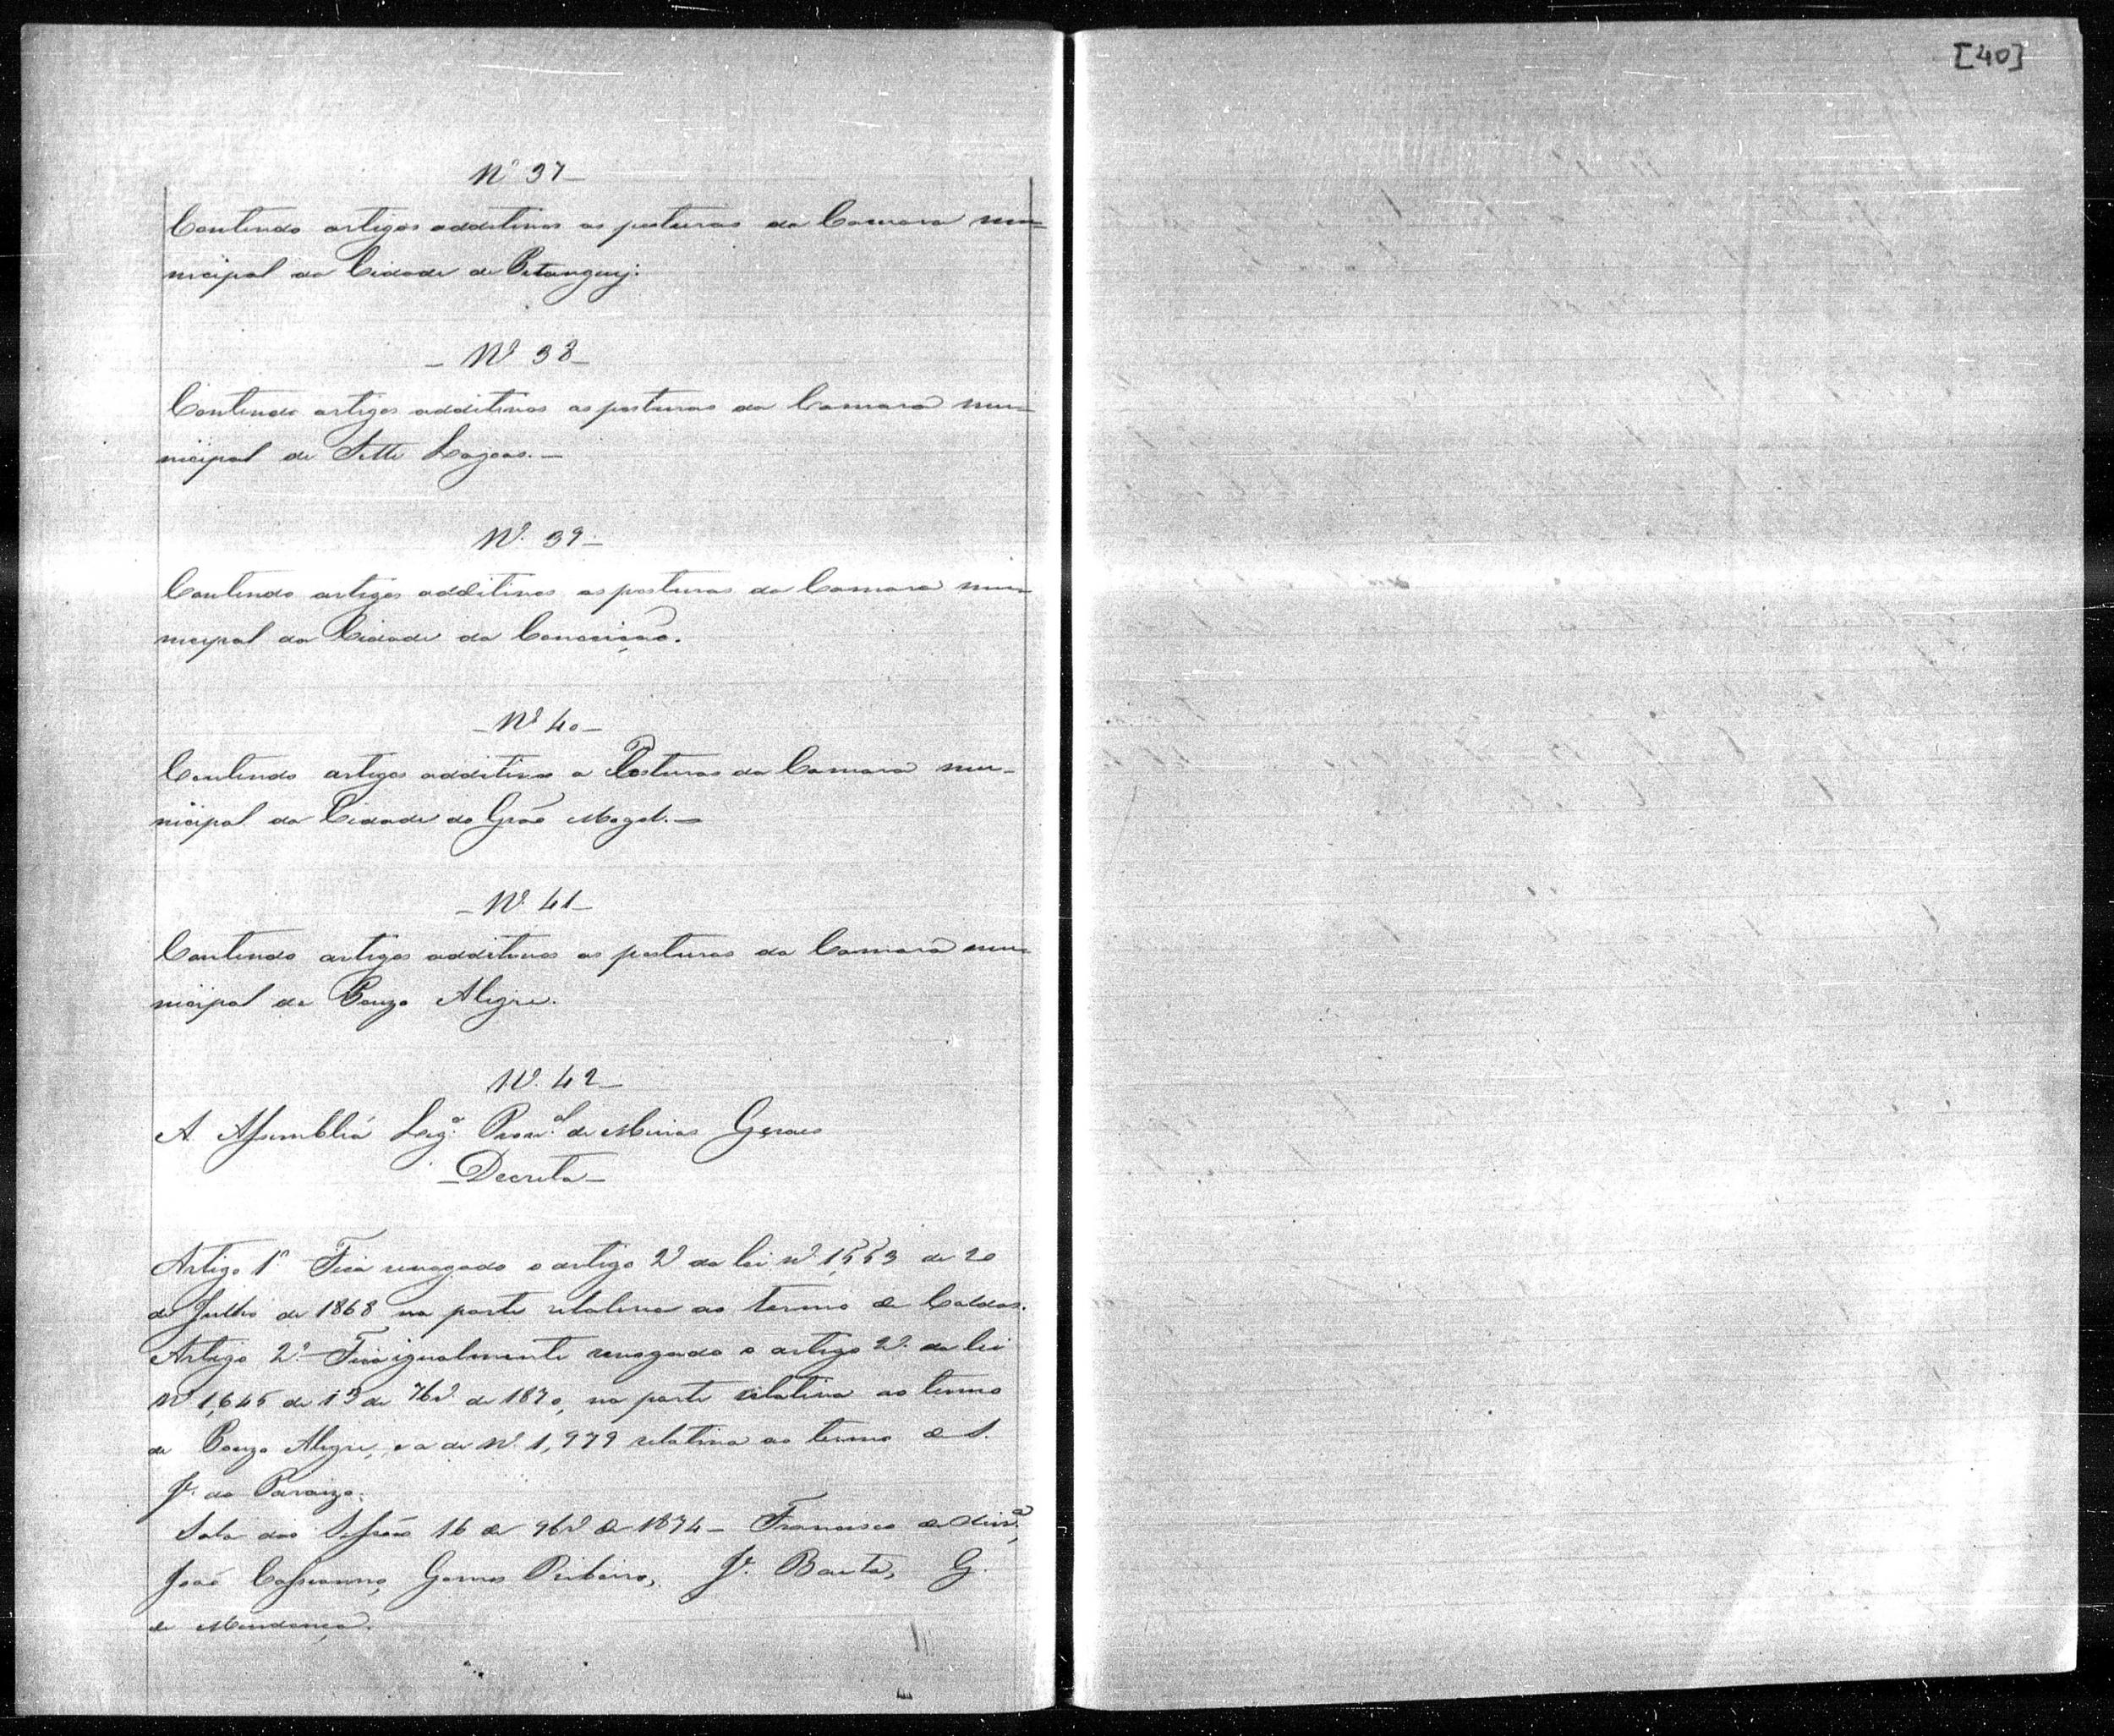 Nº 37 —
Contendo artigos additivos as posturas da Camara mu=
nicipal da Cidade de Pitanguy.
— Nº 38 —
Contendo artigos additivos as posturas da Camara mu=
nicipal de Sette Lagoas. —
Nº 39 —
Contendo artigos additivos as posturas da Camara mu=
nicipal da Cidade da Conceição.
— Nº 40 —
Contendo artigos additivos a Posturas da Camara mu-
nicipal da Cidade do Grão Mogol. —
— Nº 41 —
Contendo artigos additivos as posturas da Camara mu=
nicipal de Pouzo Alegre.
Nº 42 —
A Assembléa Leg.ª Prov.al de Minas Geraes
— Decreta —
Artigo 1º Fica revogado o artigo 2º da lei nº 1,553 de 20
de Julho de 1868 na parte relativa ao termo de Caldas.
Artigo 2º — Fica igualmente revogado o artigo 2º da lei
Nº 1,645 de 13 de 7bro de 1870, na parte relativa ao termo
de Pouzo Alegre, e a de Nº 1,979 relativa ao termo de S.
Je. do Paraizo.
Sala das Sessões 16 de 9bro de 1874 — Francisco de
João Cassianno, Gomes Ribeiro, Je. Bauta, G.
de Mendonça.
[40]